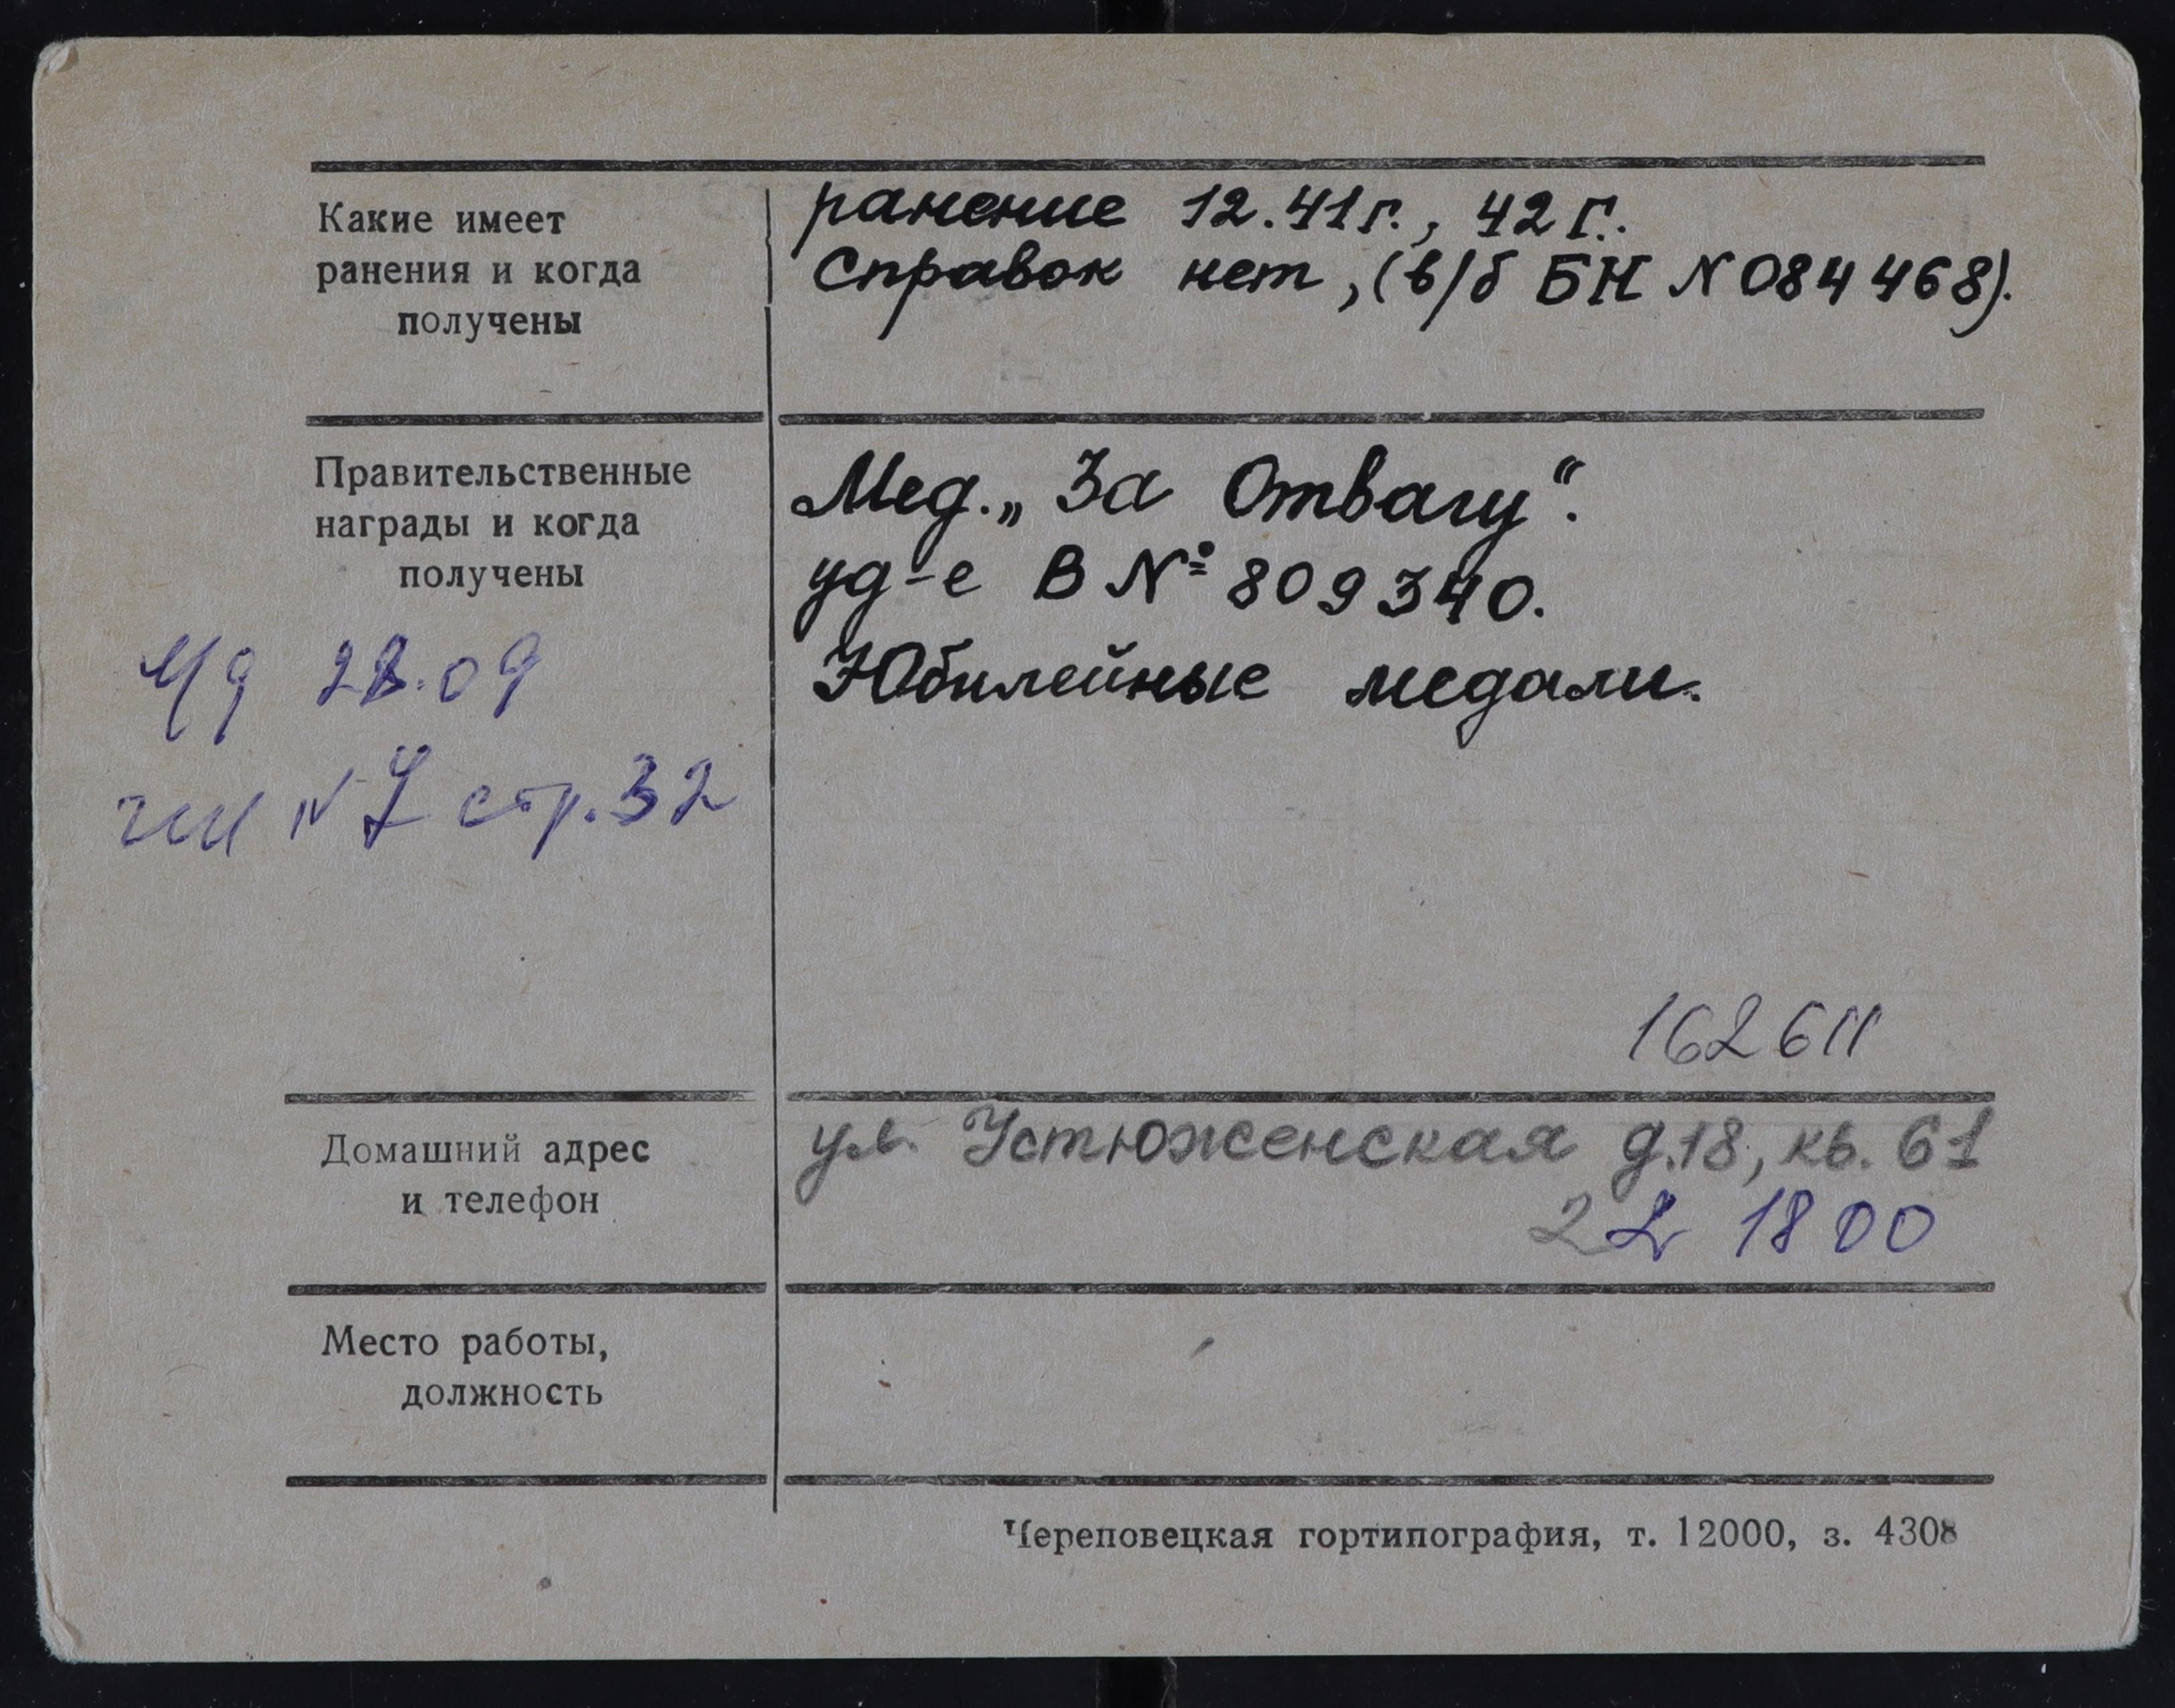 Какие имеет
ранения и когда
получены
ранение 12.41г., 42г.
Справок нет, (в/б БН N 084468).
Правительственные
награды и когда
получены
Мед. „За Отвагу“.
уд-е В № 809340.
Юбилейные медали.
09
N 7 стр. 32
162611
Домашний адрес
и телефон
ул. Устюженская д.18, кв. 61
22 18 00
Место работы,
должность
Череповецкая гортипография, т. 12000, з. 4308